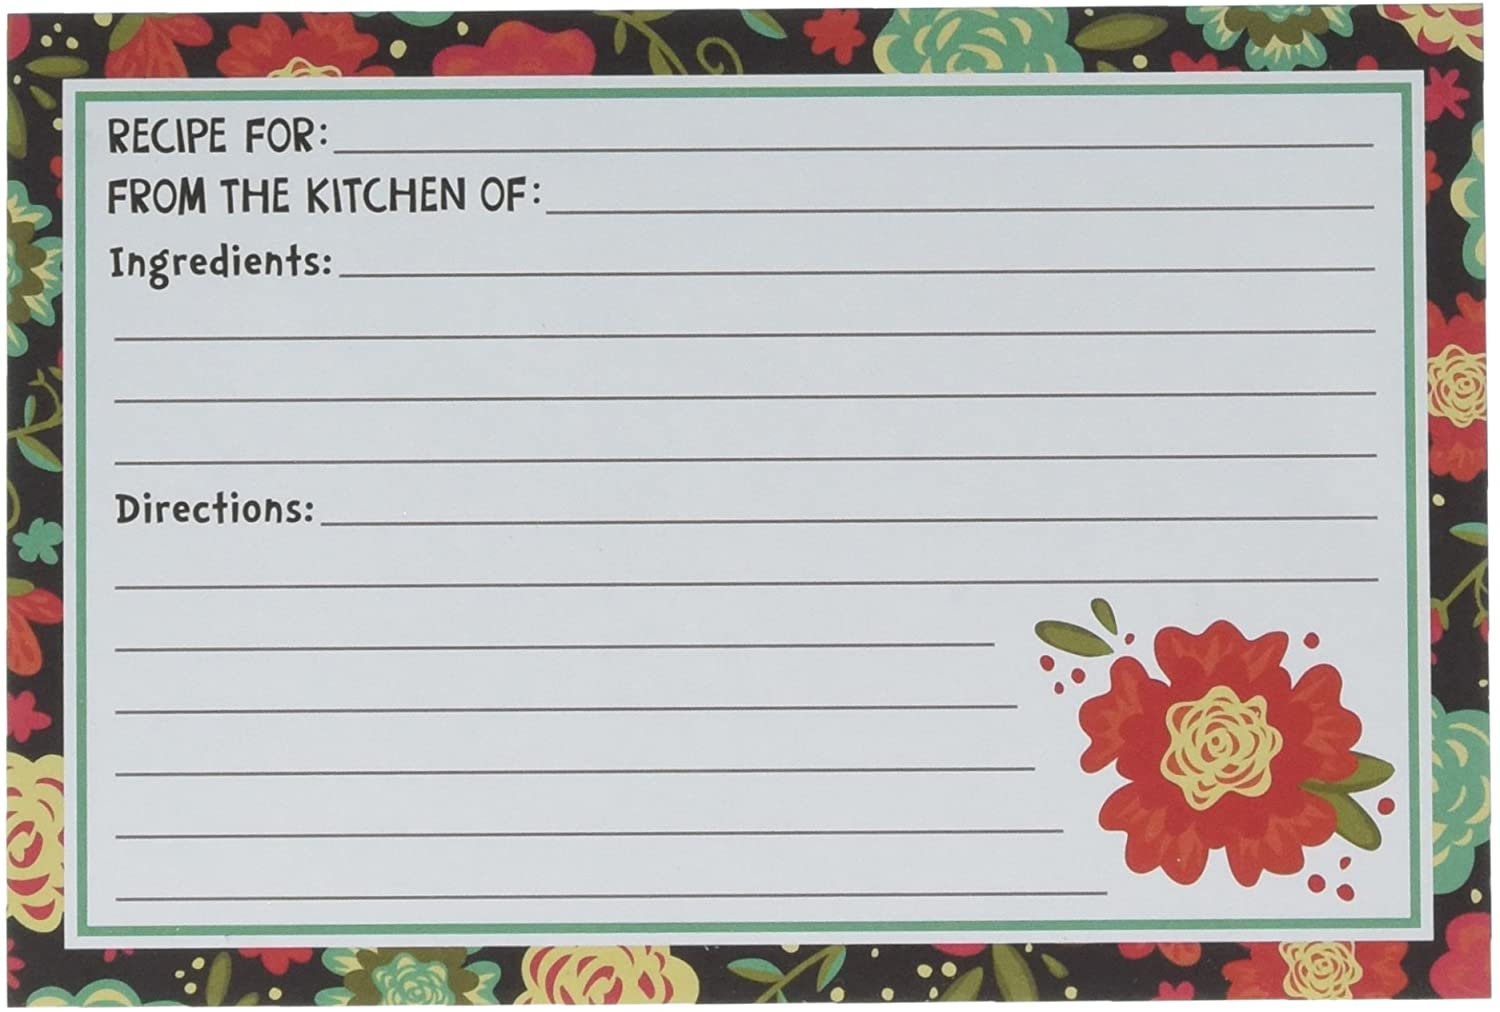 RECIPE FOR:
FROM THE KITCHEN OF:
Ingredients:
Directions: